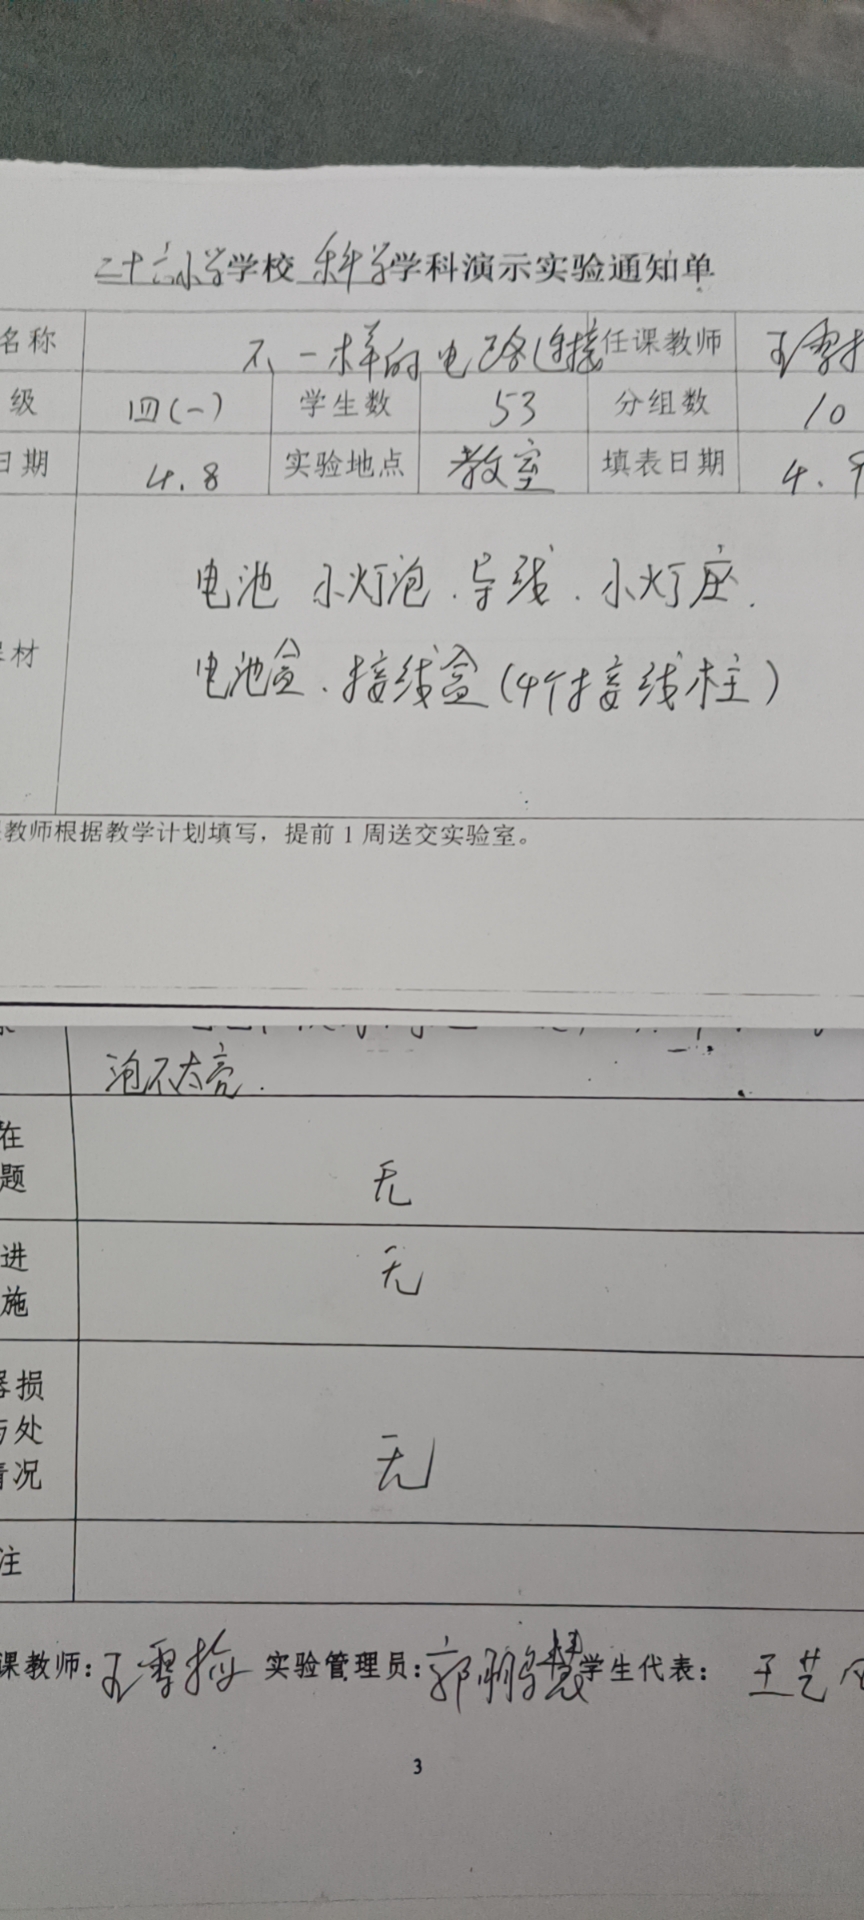 二十六小学学校 科学学科演示实验通知单
名称 不一样的电路连接 任课教师 王雪
级 四(一) 学生数 53 分组数 10
日期 4.8 实验地点 教室 填表日期 4.9
电池 小灯泡.导线.小灯座.
材
电池盒.接线盒(4个接线柱)
教师根据教学计划填写，提前1周送交实验室。
泡不太亮.
在
题
无
进
施
无
器损
与处
情况
无
注
课教师: 王雪 实验管理员: 郭鹏慧 学生代表: 王艺
3